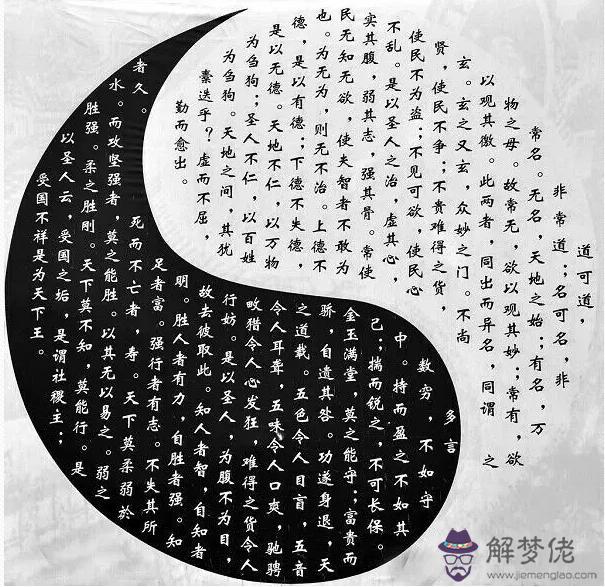 道可道，
非常道；名可名，非
常名。无名，天地之始；有名，万
物之母。故常无，欲以观其妙；常有，欲
以观其徼。此两者，同出而异名，同谓 之
玄。玄之又玄，众妙之门。不尚
贤，使民不争；不贵难得之货，
使民不为盗；不见可欲，使民心
不乱。是以圣人之治，虚其心，
实其腹，弱其志，强其骨。常使
民无知无欲，使夫智者不敢为
也。为无为，则无不治。上德不
德，是以有德；下德不失德，
是以无德。天地不仁，以万物
为刍狗；圣人不仁，以百姓
为刍狗。天地之间，其犹
橐迭乎？虚而不屈，
勤而愈出。
多言
数穷，不如守
中。持而盈之不如其
己；揣而锐之，不可长保。
金玉满堂，莫之能守；富贵而
骄，自遗其咎。功遂身退，天
之道哉。五色令人目盲，五音
令人耳聋，五味令人口爽，驰骋
畋猎令人心发狂，难得之货令人
行妨。是以圣人，为腹不为目，
故去彼取此。知人者智，自知者
明。胜人者有力，自胜者强。知
足者富。强行者有志。不失其所
者久。死而不亡者，寿。天下莫柔弱於
水。而攻坚强者，莫之能胜。以其无以易之。弱之
胜强。柔之胜刚。天下莫不知，莫能行。是
以圣人云，受国之垢，是谓社稷主；
受国不祥是为天下王。
解梦佬
www.jiemenglao.com